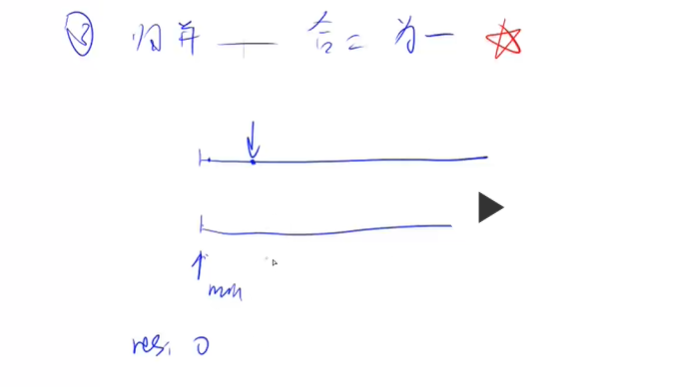 ③ 归并 —— 合二为一 ☆
min
res: 0